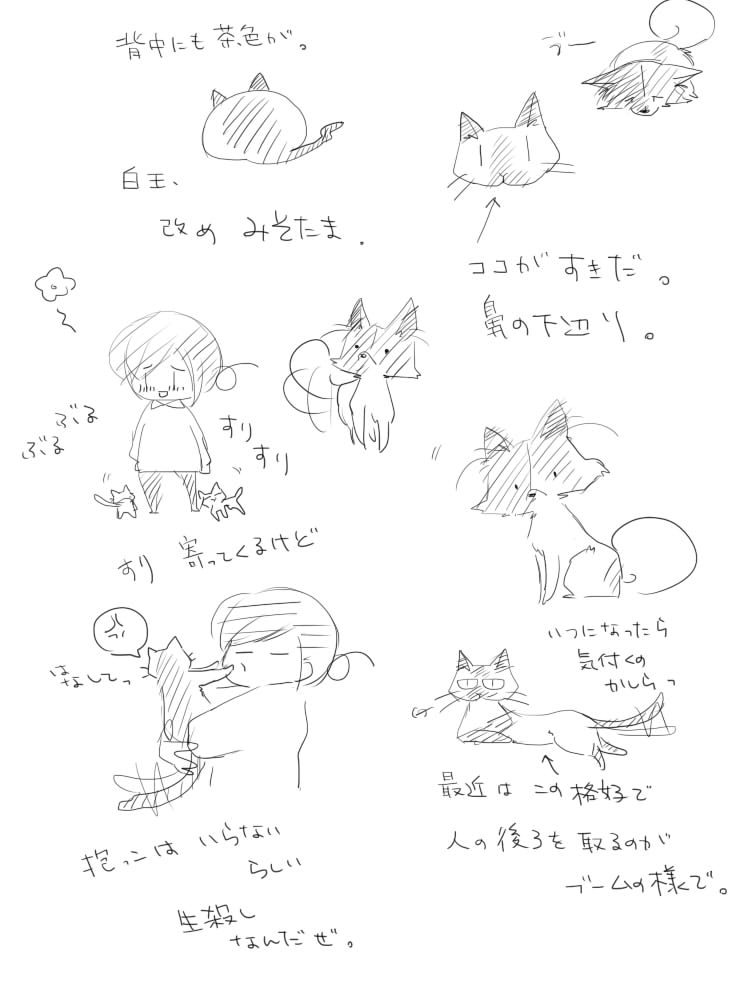 背中にも茶色が。
白玉、
改め みそたま.
ブー
ココがすきだ。
鼻の下辺り。
ぶるぶる
すりすり
すり寄ってくるけど
はなしてっ
抱っこは いらない
らしい
生殺し
なんだぜ。
いつになったら
気付くの
かしらっ
最近は この格好で
人の後ろを取るのが
ブームの様で。